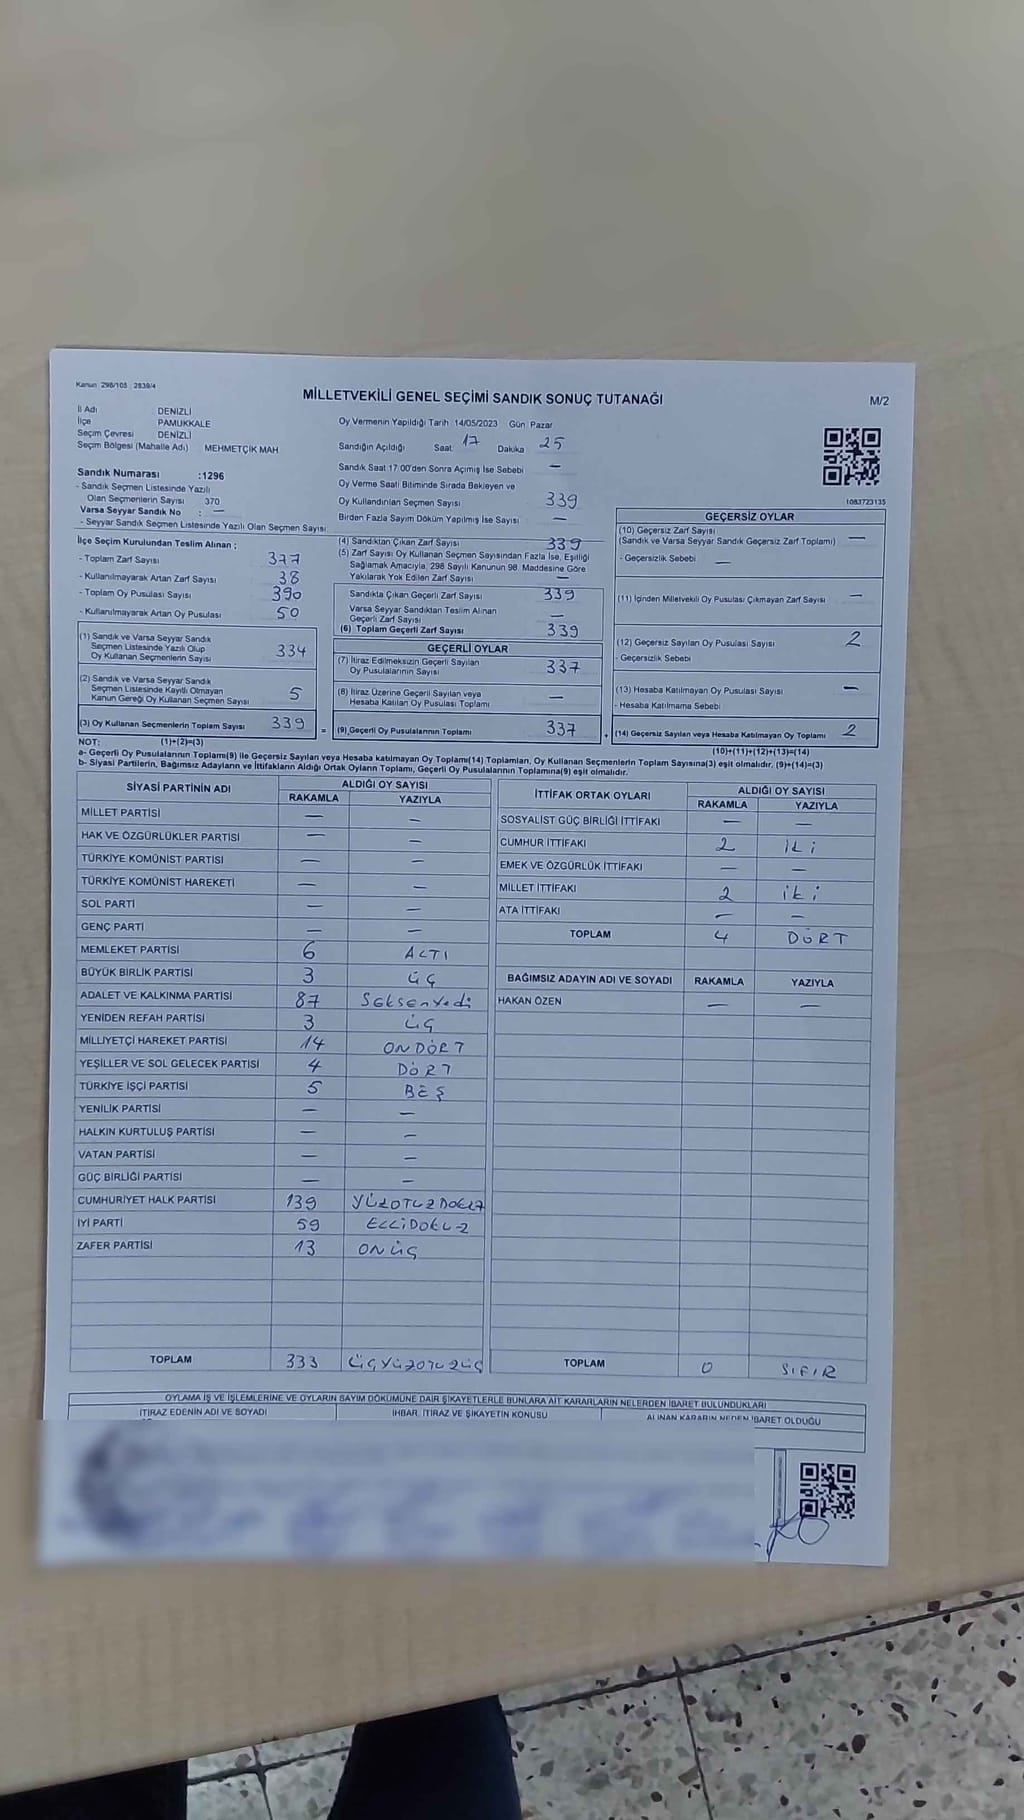 Kanun 298/105 2839/4
MİLLETVEKİLİ GENEL SEÇİMİ SANDIK SONUÇ TUTANAĞI
M/2
İl Adı DENİZLİ
İlçe PAMUKKALE
Seçim Çevresi DENİZLİ
Seçim Bölgesi (Mahalle Adı) MEHMETÇİK MAH
Oy Vermenin Yapıldığı Tarih 14/05/2023 Gün Pazar
Sandığın Açıldığı Saat 17 Dakika 25
Sandık Saat 17:00'den Sonra Açımış İse Sebebi —
Oy Verme Saati Bitiminde Sırada Bekleyen ve
Oy Kullandırılan Seçmen Sayısı 339
Birden Fazla Sayım Döküm Yapılmış İse Sayısı —
1083723135
Sandık Numarası :1296
- Sandık Seçmen Listesinde Yazılı
Olan Seçmenlerin Sayısı 370
Varsa Seyyar Sandık No : —
- Seyyar Sandık Seçmen Listesinde Yazılı Olan Seçmen Sayısı
İlçe Seçim Kurulundan Teslim Alınan ;
- Toplam Zarf Sayısı 377
- Kullanılmayarak Artan Zarf Sayısı 38
- Toplam Oy Pusulası Sayısı 390
- Kullanılmayarak Artan Oy Pusulası 50
(1) Sandık ve Varsa Seyyar Sandık
Seçmen Listesinde Yazılı Olup
Oy Kullanan Seçmenlerin Sayısı 334
(2) Sandık ve Varsa Seyyar Sandık
Seçmen Listesinde Kayıtlı Olmayan
Kanun Gereği Oy Kullanan Seçmen Sayısı 5
(3) Oy Kullanan Seçmenlerin Toplam Sayısı 339 =
(4) Sandıktan Çıkan Zarf Sayısı 339
(5) Zarf Sayısı Oy Kullanan Seçmen Sayısından Fazla İse, Eşitliği
Sağlamak Amacıyla, 298 Sayılı Kanunun 98. Maddesine Göre
Yakılarak Yok Edilen Zarf Sayısı —
Sandıkta Çıkan Geçerli Zarf Sayısı 339
Varsa Seyyar Sandıktan Teslim Alınan
Geçerli Zarf Sayısı —
(6) Toplam Geçerli Zarf Sayısı 339
GEÇERLİ OYLAR
(7) İtiraz Edilmeksizin Geçerli Sayılan
Oy Pusulalarının Sayısı 337
(8) İtiraz Üzerine Geçerli Sayılan veya
Hesaba Katılan Oy Pusulası Toplamı —
(9) Geçerli Oy Pusulalarının Toplamı 337 +
GEÇERSİZ OYLAR
(10) Geçersiz Zarf Sayısı
(Sandık ve Varsa Seyyar Sandık Geçersiz Zarf Toplamı) —
- Geçersizlik Sebebi —
(11) İçinden Milletvekili Oy Pusulası Çıkmayan Zarf Sayısı —
(12) Geçersiz Sayılan Oy Pusulası Sayısı 2
- Geçersizlik Sebebi
(13) Hesaba Katılmayan Oy Pusulası Sayısı —
- Hesaba Katılmama Sebebi
(14) Geçersiz Sayılan veya Hesaba Katılmayan Oy Toplamı 2
NOT: (1)+(2)=(3) (10)+(11)+(12)+(13)=(14)
a- Geçerli Oy Pusulalarının Toplamı(9) ile Geçersiz Sayılan veya Hesaba katılmayan Oy Toplamı(14) Toplamları, Oy Kullanan Seçmenlerin Toplam Sayısına(3) eşit olmalıdır. (9)+(14)=(3)
b- Siyasi Partilerin, Bağımsız Adayların ve İttifakların Aldığı Ortak Oyların Toplamı, Geçerli Oy Pusulalarının Toplamına(9) eşit olmalıdır.
SİYASİ PARTİNİN ADI ALDIĞI OY SAYISI
RAKAMLA YAZIYLA
MİLLET PARTİSİ — —
HAK VE ÖZGÜRLÜKLER PARTİSİ — —
TÜRKİYE KOMÜNİST PARTİSİ — —
TÜRKİYE KOMÜNİST HAREKETİ — —
SOL PARTİ — —
GENÇ PARTİ — —
MEMLEKET PARTİSİ 6 ALTI
BÜYÜK BİRLİK PARTİSİ 3 ÜÇ
ADALET VE KALKINMA PARTİSİ 87 Seksenyedi
YENİDEN REFAH PARTİSİ 3 ÜÇ
MİLLİYETÇİ HAREKET PARTİSİ 14 ONDÖRT
YEŞİLLER VE SOL GELECEK PARTİSİ 4 DÖRT
TÜRKİYE İŞÇİ PARTİSİ 5 BEŞ
YENİLİK PARTİSİ — —
HALKIN KURTULUŞ PARTİSİ — —
VATAN PARTİSİ — —
GÜÇ BİRLİĞİ PARTİSİ — —
CUMHURİYET HALK PARTİSİ 139 YÜZOTUZDOKUZ
İYİ PARTİ 59 ELLİDOKUZ
ZAFER PARTİSİ 13 ONÜÇ
TOPLAM 333 ÜÇYÜZOTUZÜÇ
İTTİFAK ORTAK OYLARI ALDIĞI OY SAYISI
RAKAMLA YAZIYLA
SOSYALİST GÜÇ BİRLİĞİ İTTİFAKI — —
CUMHUR İTTİFAKI 2 iki
EMEK VE ÖZGÜRLÜK İTTİFAKI — —
MİLLET İTTİFAKI 2 iki
ATA İTTİFAKI — —
TOPLAM 4 DÖRT
BAĞIMSIZ ADAYIN ADI VE SOYADI RAKAMLA YAZIYLA
HAKAN ÖZEN — —
TOPLAM 0 SIFIR
OYLAMA İŞ VE İŞLEMLERİNE VE OYLARIN SAYIM DÖKÜMÜNE DAİR ŞİKAYETLERLE BUNLARA AİT KARARLARIN NELERDEN İBARET BULUNDUKLARI
İTİRAZ EDENİN ADI VE SOYADI İHBAR, İTİRAZ VE ŞİKAYETİN KONUSU ALINAN KARARIN NEDEN İBARET OLDUĞU